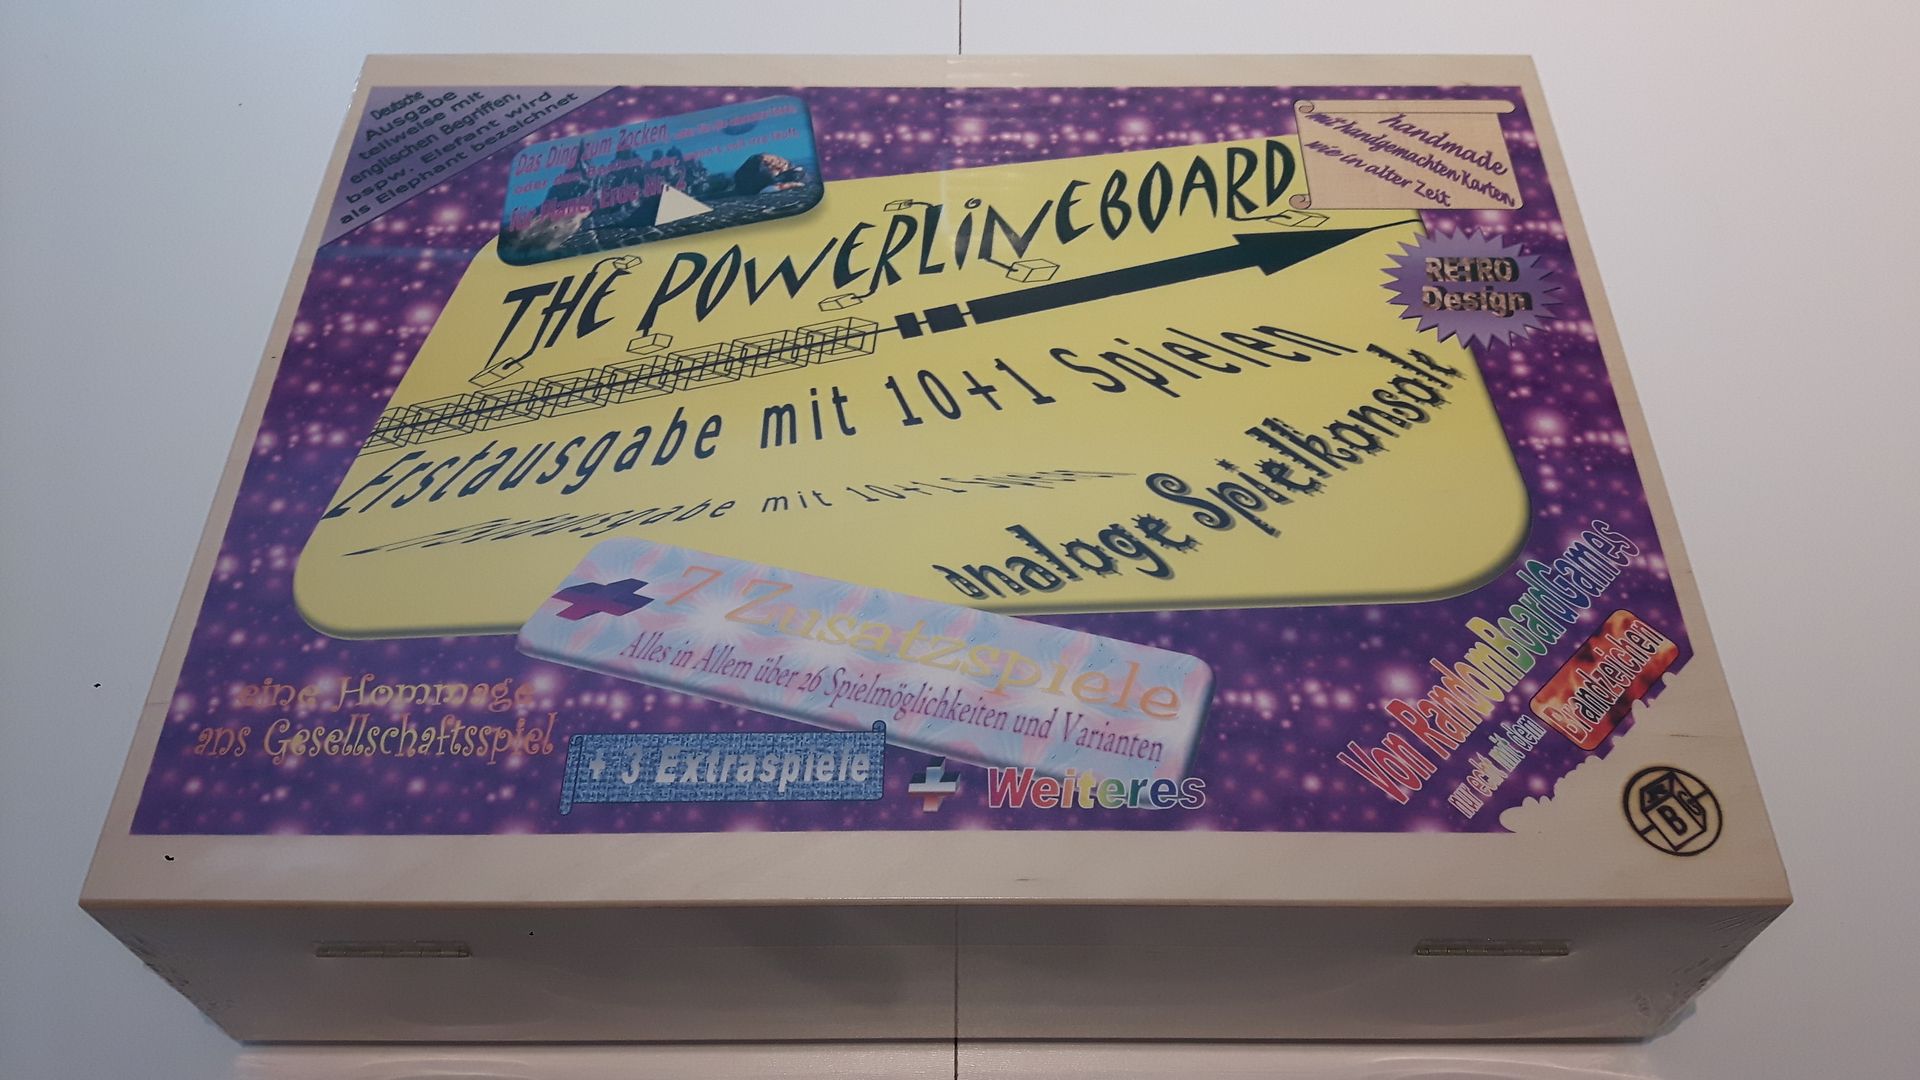 Deutsche
Ausgabe
teilweise mit
englischen Begriffen,
bspw. Elefant wird
als Elephant bezeichnet
Das Ding zum Zocken,
für Planet Erde Nr. 2
handmade
mit handgemachten Karten
wie in alter Zeit
THE POWERLINEBOARD
RETRO
Design
Erstausgabe mit 10+1 Spielen
ausgabe mit 10+1 Spielen
analoge Spielkonsole
+ 7 Zusatzspiele
Alles in Allem über 26 Spielmöglichkeiten und Varianten
eine Hommage
ans Gesellschaftsspiel
+ 3 Extraspiele
+ Weiteres
Von RandomBoardGames
nur echt mit dem
Brandzeichen
B G